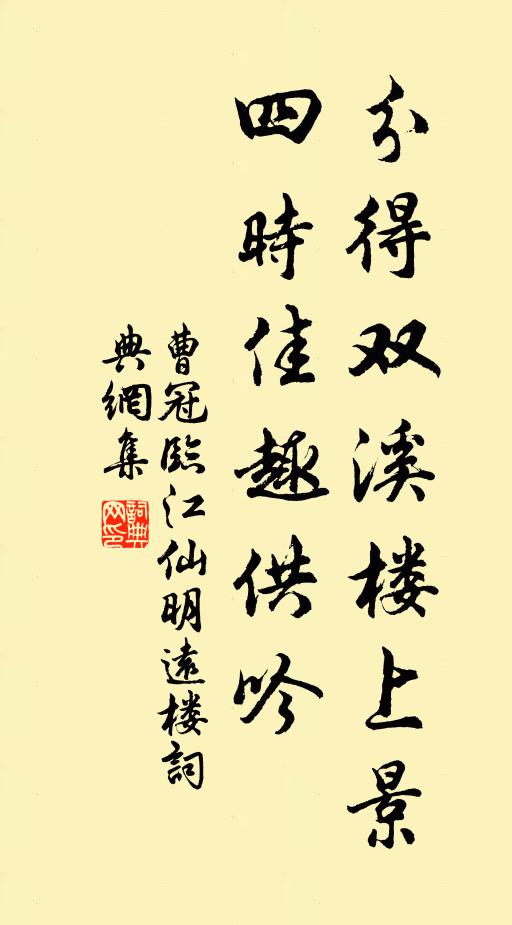 分得双溪楼上景
四時佳趣供吟
曹冠臨江仙明遠楼詞
典網集
詞典网印